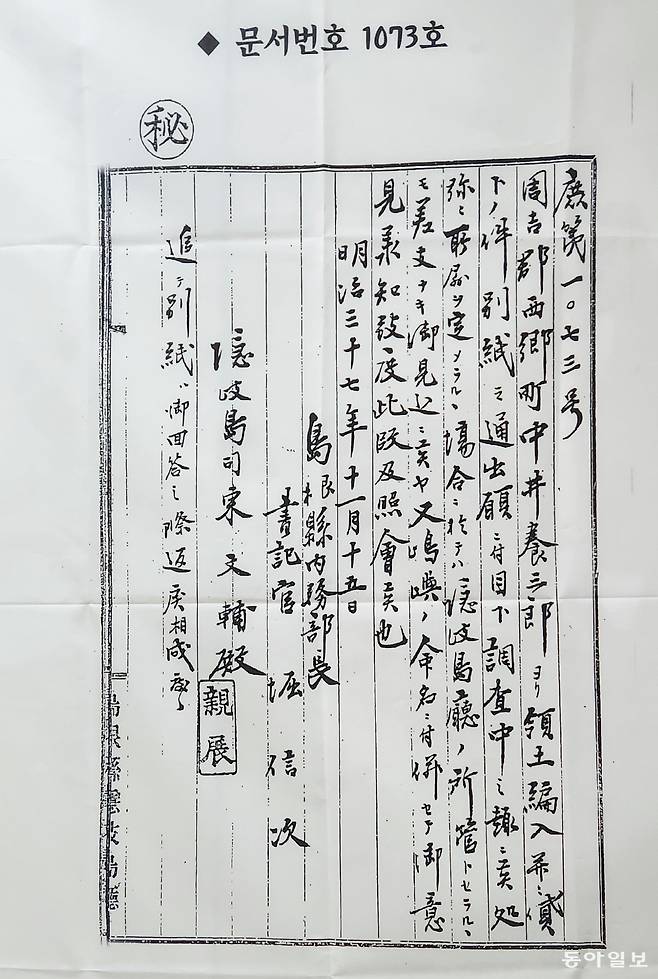 ◆ 문서번호 1073호
秘
庶第一〇七三号
周吉郡西郷町中井養三郎ヨリ領土編入并ニ貸
下ノ件別紙之通出願ニ付目下調査中之趣ニ候処
弥々所属ヲ定メラルヽ場合ニ於テハ隠岐島庁ノ所管トセラルヽ
モ差支ナキ御見込ニ候ヤ又嶋嶼ノ命名ニ付併セテ御意
見承知致度此段及照会候也
明治三十七年十一月十五日
島根縣内務部長
書記官 堀信次
隠岐島司東文輔殿
親展
追テ別紙ハ御回答之際返戻相成度候
島根縣隠岐島廳
동아일보